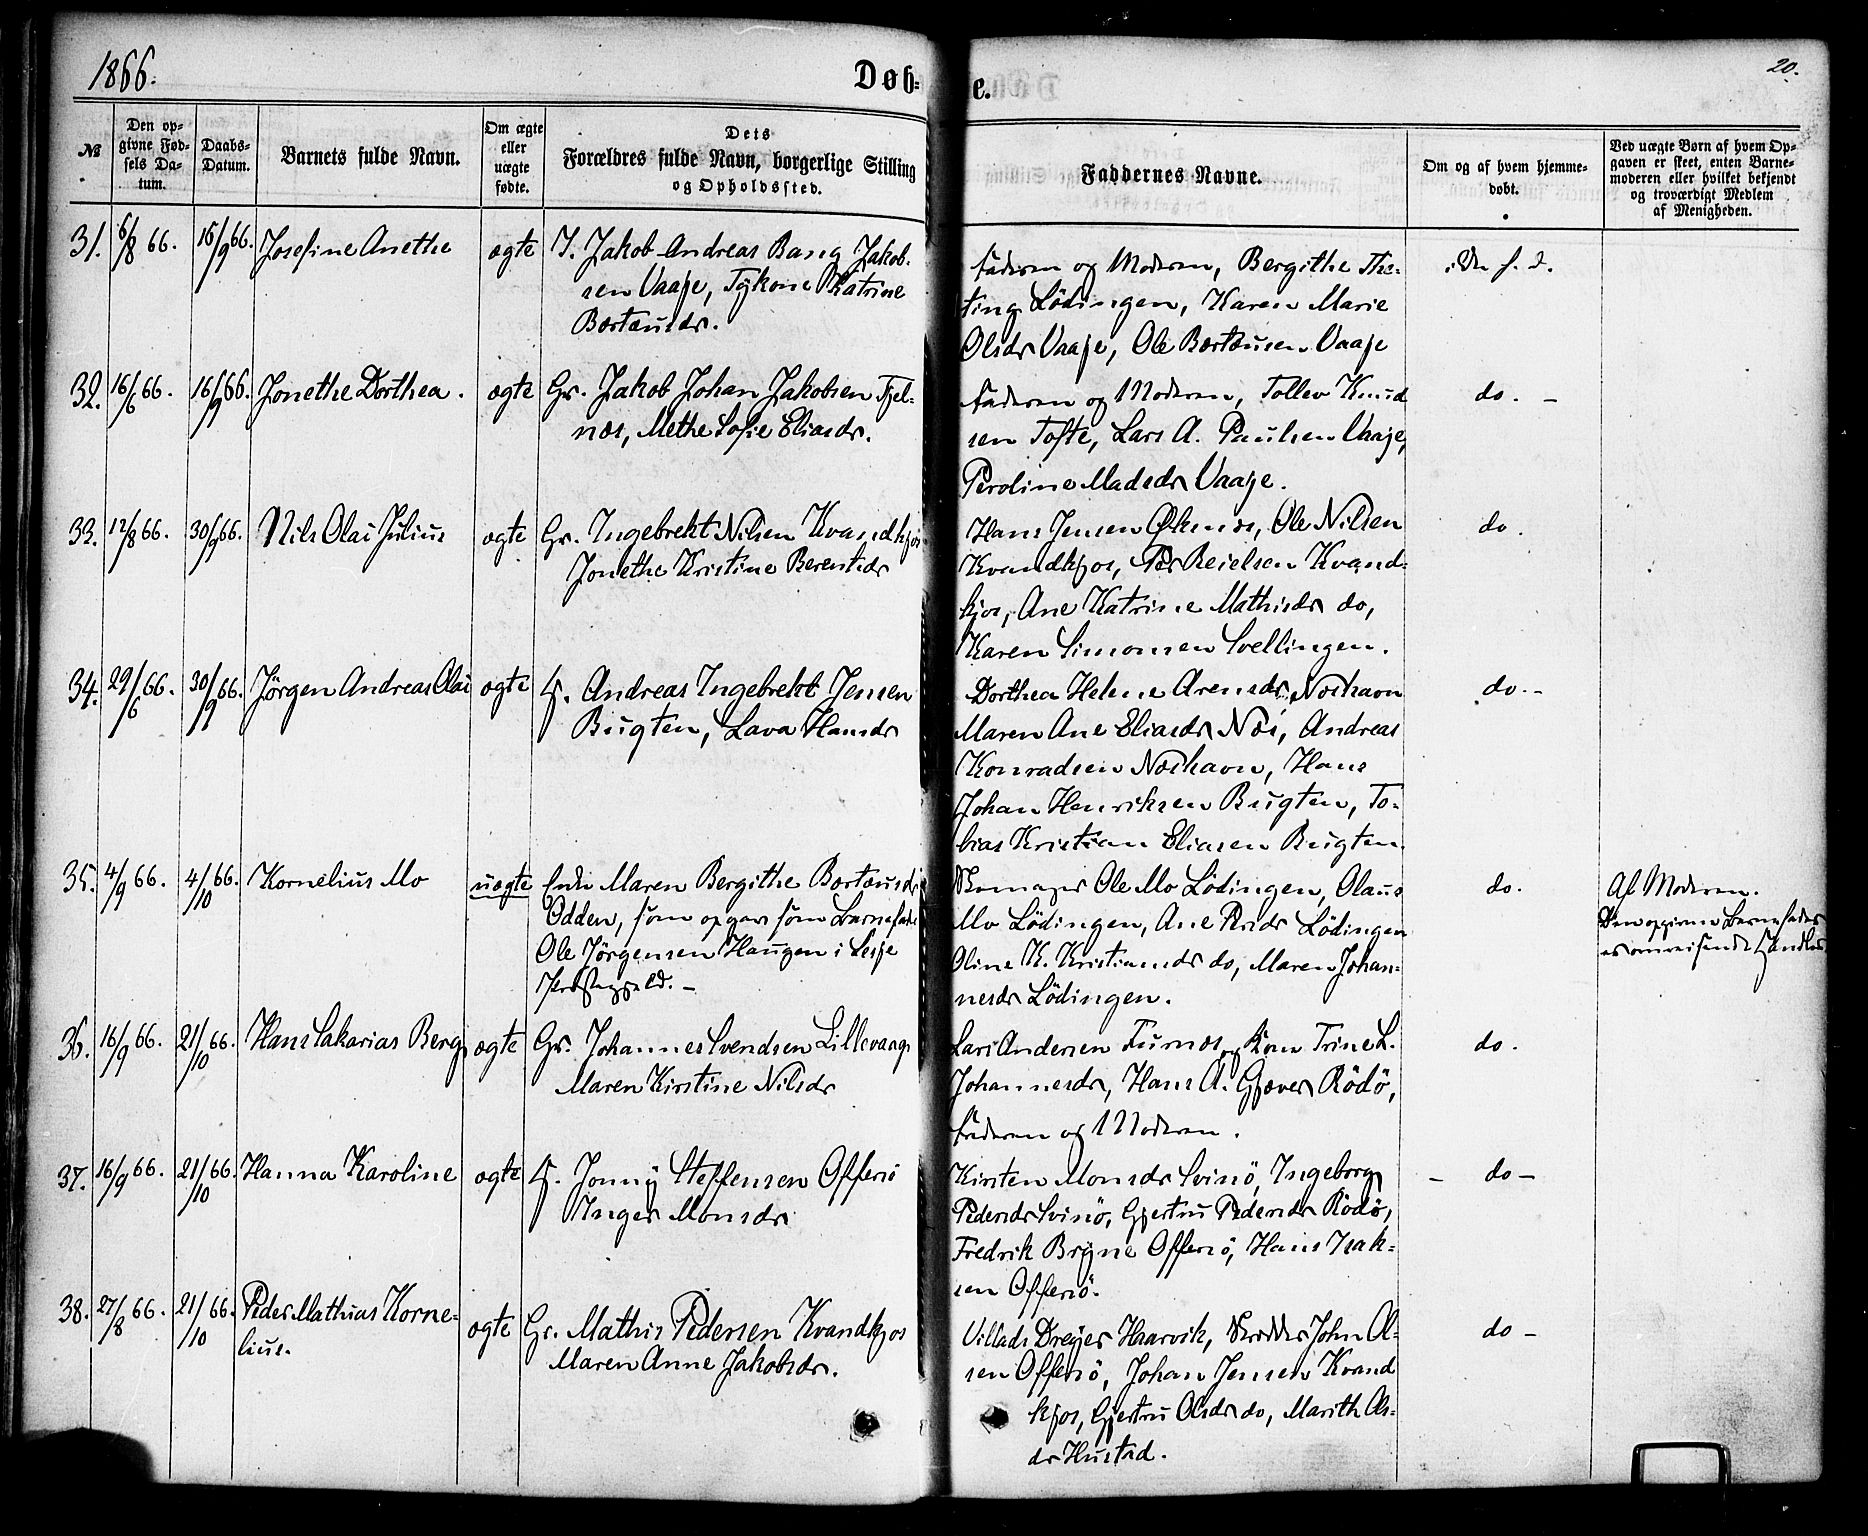 1866.
Døb-
e.
20.
№
Den opgivne Fødsels Datum.
Daabs-Datum.
Barnets fulde Navn.
Om ægte eller uægte fødte.
Dets
Forældres fulde Navn, borgerlige Stilling
og Opholdssted.
Faddernes Navne.
Om og af hvem hjemme-
døbt.
Ved uægte Børn af hvem Op-
gaven er skeet, enten Barne-
moderen eller hvilket bekjendt
og troværdigt Medlem
af Menigheden.
31. 6/8 66. 16/9 66. Josefine Anethe ægte I. Jakob Andreas Bang Jakob-
sen Vaaje, Tykone Katrine
Berteusdr.
Faderen og Moderen, Bergithe The-
ting Lödingen, Karen Marie
Olsdr Vaaje, Ole Bertæusen Vaaje
i Dn f. d.
32. 16/6 66. 16/9 66. Jonethe Dorthea. ægte Gr. Jakob Johan Jakobsen Fjel-
næs, Methe Sofie Eliasdr.
Faderen og Moderen, Tollev Knud
sen Tofte, Lars A. Paulsen Vaaje,
Peroline Madsdr Vaaje.
do. –
33. 12/8 66. 30/9 66. Nils Olai Julius ægte Gr. Ingebrekt Nilsen Kvandkjos
Jonethe Kristine Berentsdr
Hans Jensen Øknæs, Ole Nilsen
Kvandkjos, Per Reielsen Kvand-
kjos, Ane Katrine Mathisdr do,
Karen Simonsen Svellingen.
do.
34. 29/6 66. 30/9 66. Jörgen Andreas Olai ægte F. Andreas Ingebrekt Jensen
Bugten, Lava Hansdr
Dorthea Helene Arensdr Næshavn
Maren Ane Eliasdr Næs, Andreas
Konradsen Næshavn, Hans
Johan Henriksen Bugten, To-
bias Kristian Eliasen Bugten.
do. –
35. 4/9 66. 4/10 66. Kornelius Mo uægte Enke Maren Bergithe Bertæusdr
Odden, som opgav som Barnefader
Ole Jörgensen Haugen i Lesje
Præstegjeld. –
Skomager Ole Mo Lödingen, Olaus
Mo Lödingen, Ane Persdr Lödingen
Oline K. Kristiansdr do, Maren Johan-
nesdr Lödingen.
do.
Af Moderen.
Den opgivne Barnefader
er omreisende Handler
36. 16/9 66. 21/10 66. Hans Sakarias Berg ægte Gr. Johannes Svendsen Lillevang
Maren Kirstine Nilsdr
Lars Andersen Furnæs og Kone Trine L.
Johannesdr, Hans A. Gjæver Rödö,
Faderen og Moderen.
do.
37. 16/9 66. 21/10 66. Hanna Karoline ægte F. Jonny Steffensen Offersö
Inger Monsdr
Kirsten Monsdr Svinö, Ingeborg
Pedersdr Svinö, Gjertru Pedersdr Rödö,
Fredrik Bryne Offersö, Hans Isak-
sen Offersö.
– do –
38. 27/8 66. 21/10 66. Peder Mathias Korne-
lius.
ægte Gr. Mathis Pedersen Kvandkjos
Maren Anne Jakobsdr.
Villads Dreyer Haarvik, Skrædder John Ol-
sen Offersö, Johan Jensen Kvand
kjos, Gjertru Olsdr do, Marith Ols-
dr Hustad.
do –